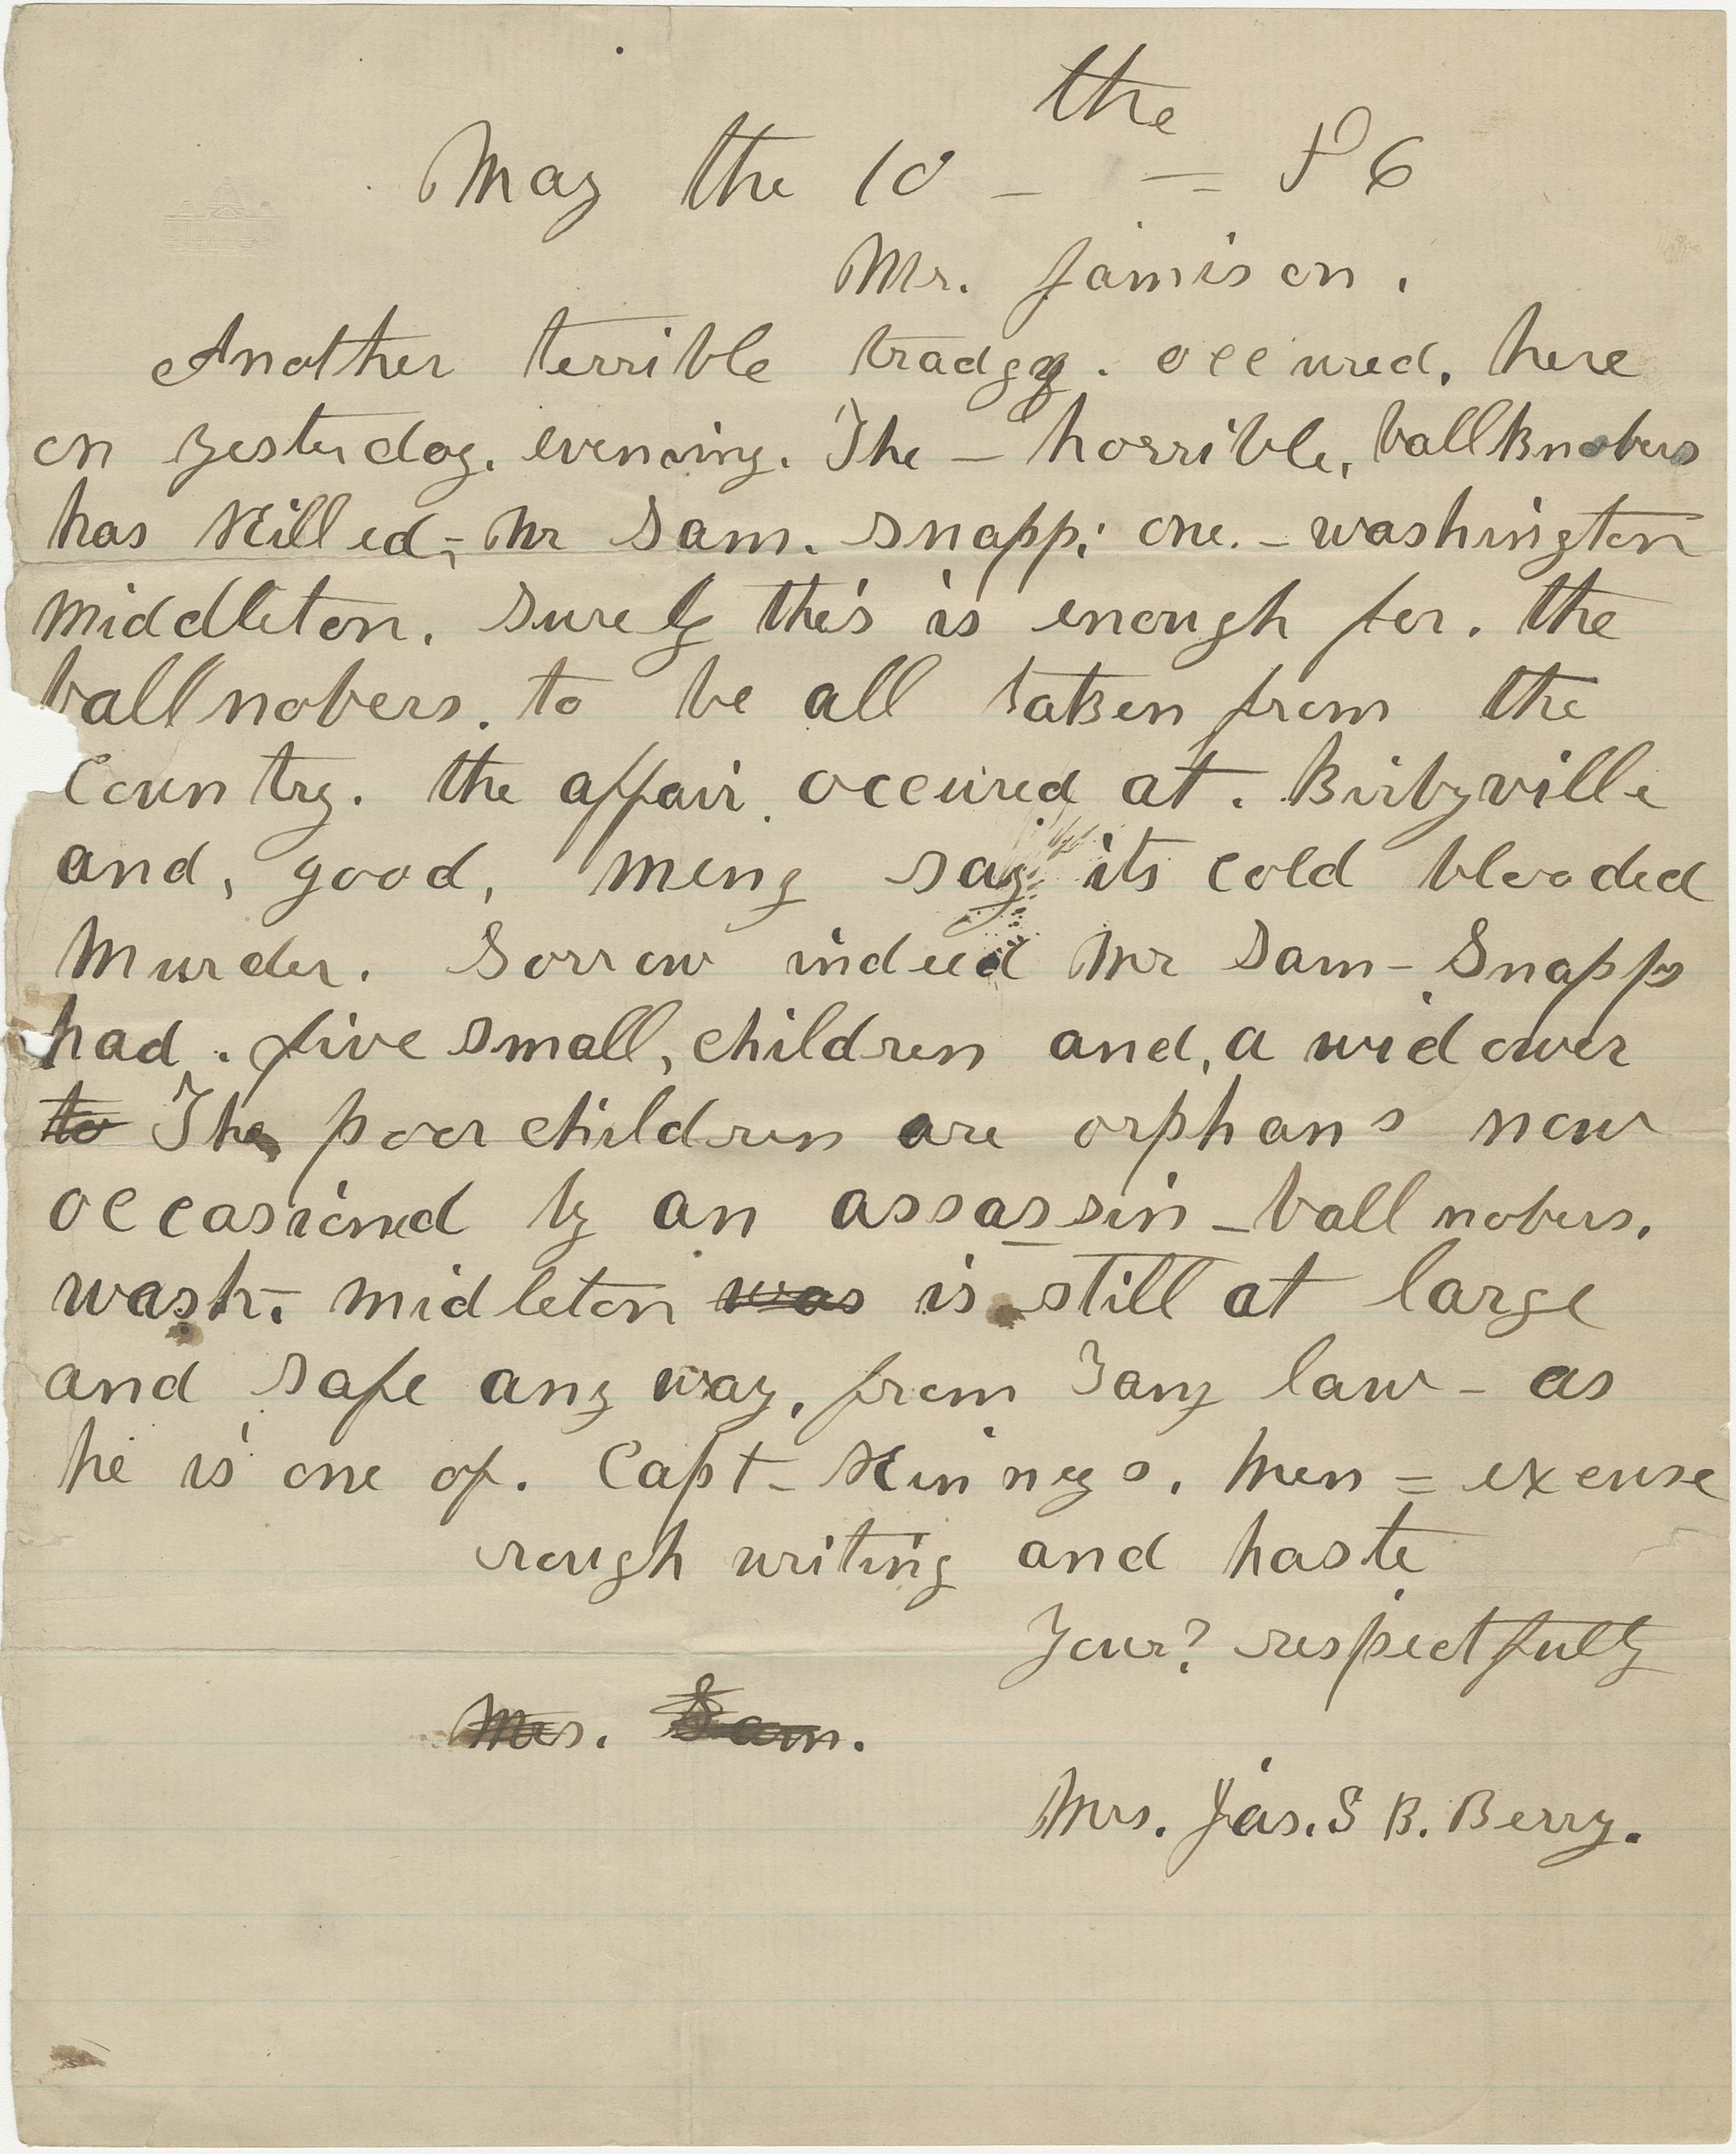 the
May the 10 - = 86
Mr. Jamison.
Another terrible tradgy. occured, here
on yesterday. evening. The - horrible, ballknobers
has killed,- Mr Sam. Snapp; one. - washington
Middleton. Surely this is enough for. the
ballnobers. to be all taken from the
Country. the affair. occured at. Kirbyville
and, good, meny say its cold blooded
Murder. Sorrow indeed Mr Sam - Snapps
had. five small, children and, a widower
to The poor children are orphans now
occasioned by an assassin - ball nobers.
wash. - Midleton was is still at large
and safe any way, from Tany law - as
he is one of. Capt - Kinneys. Men = excuse
rough writing and haste
Your? respectfully
Mrs. Sam.
Mrs. Jas. S B. Berry.